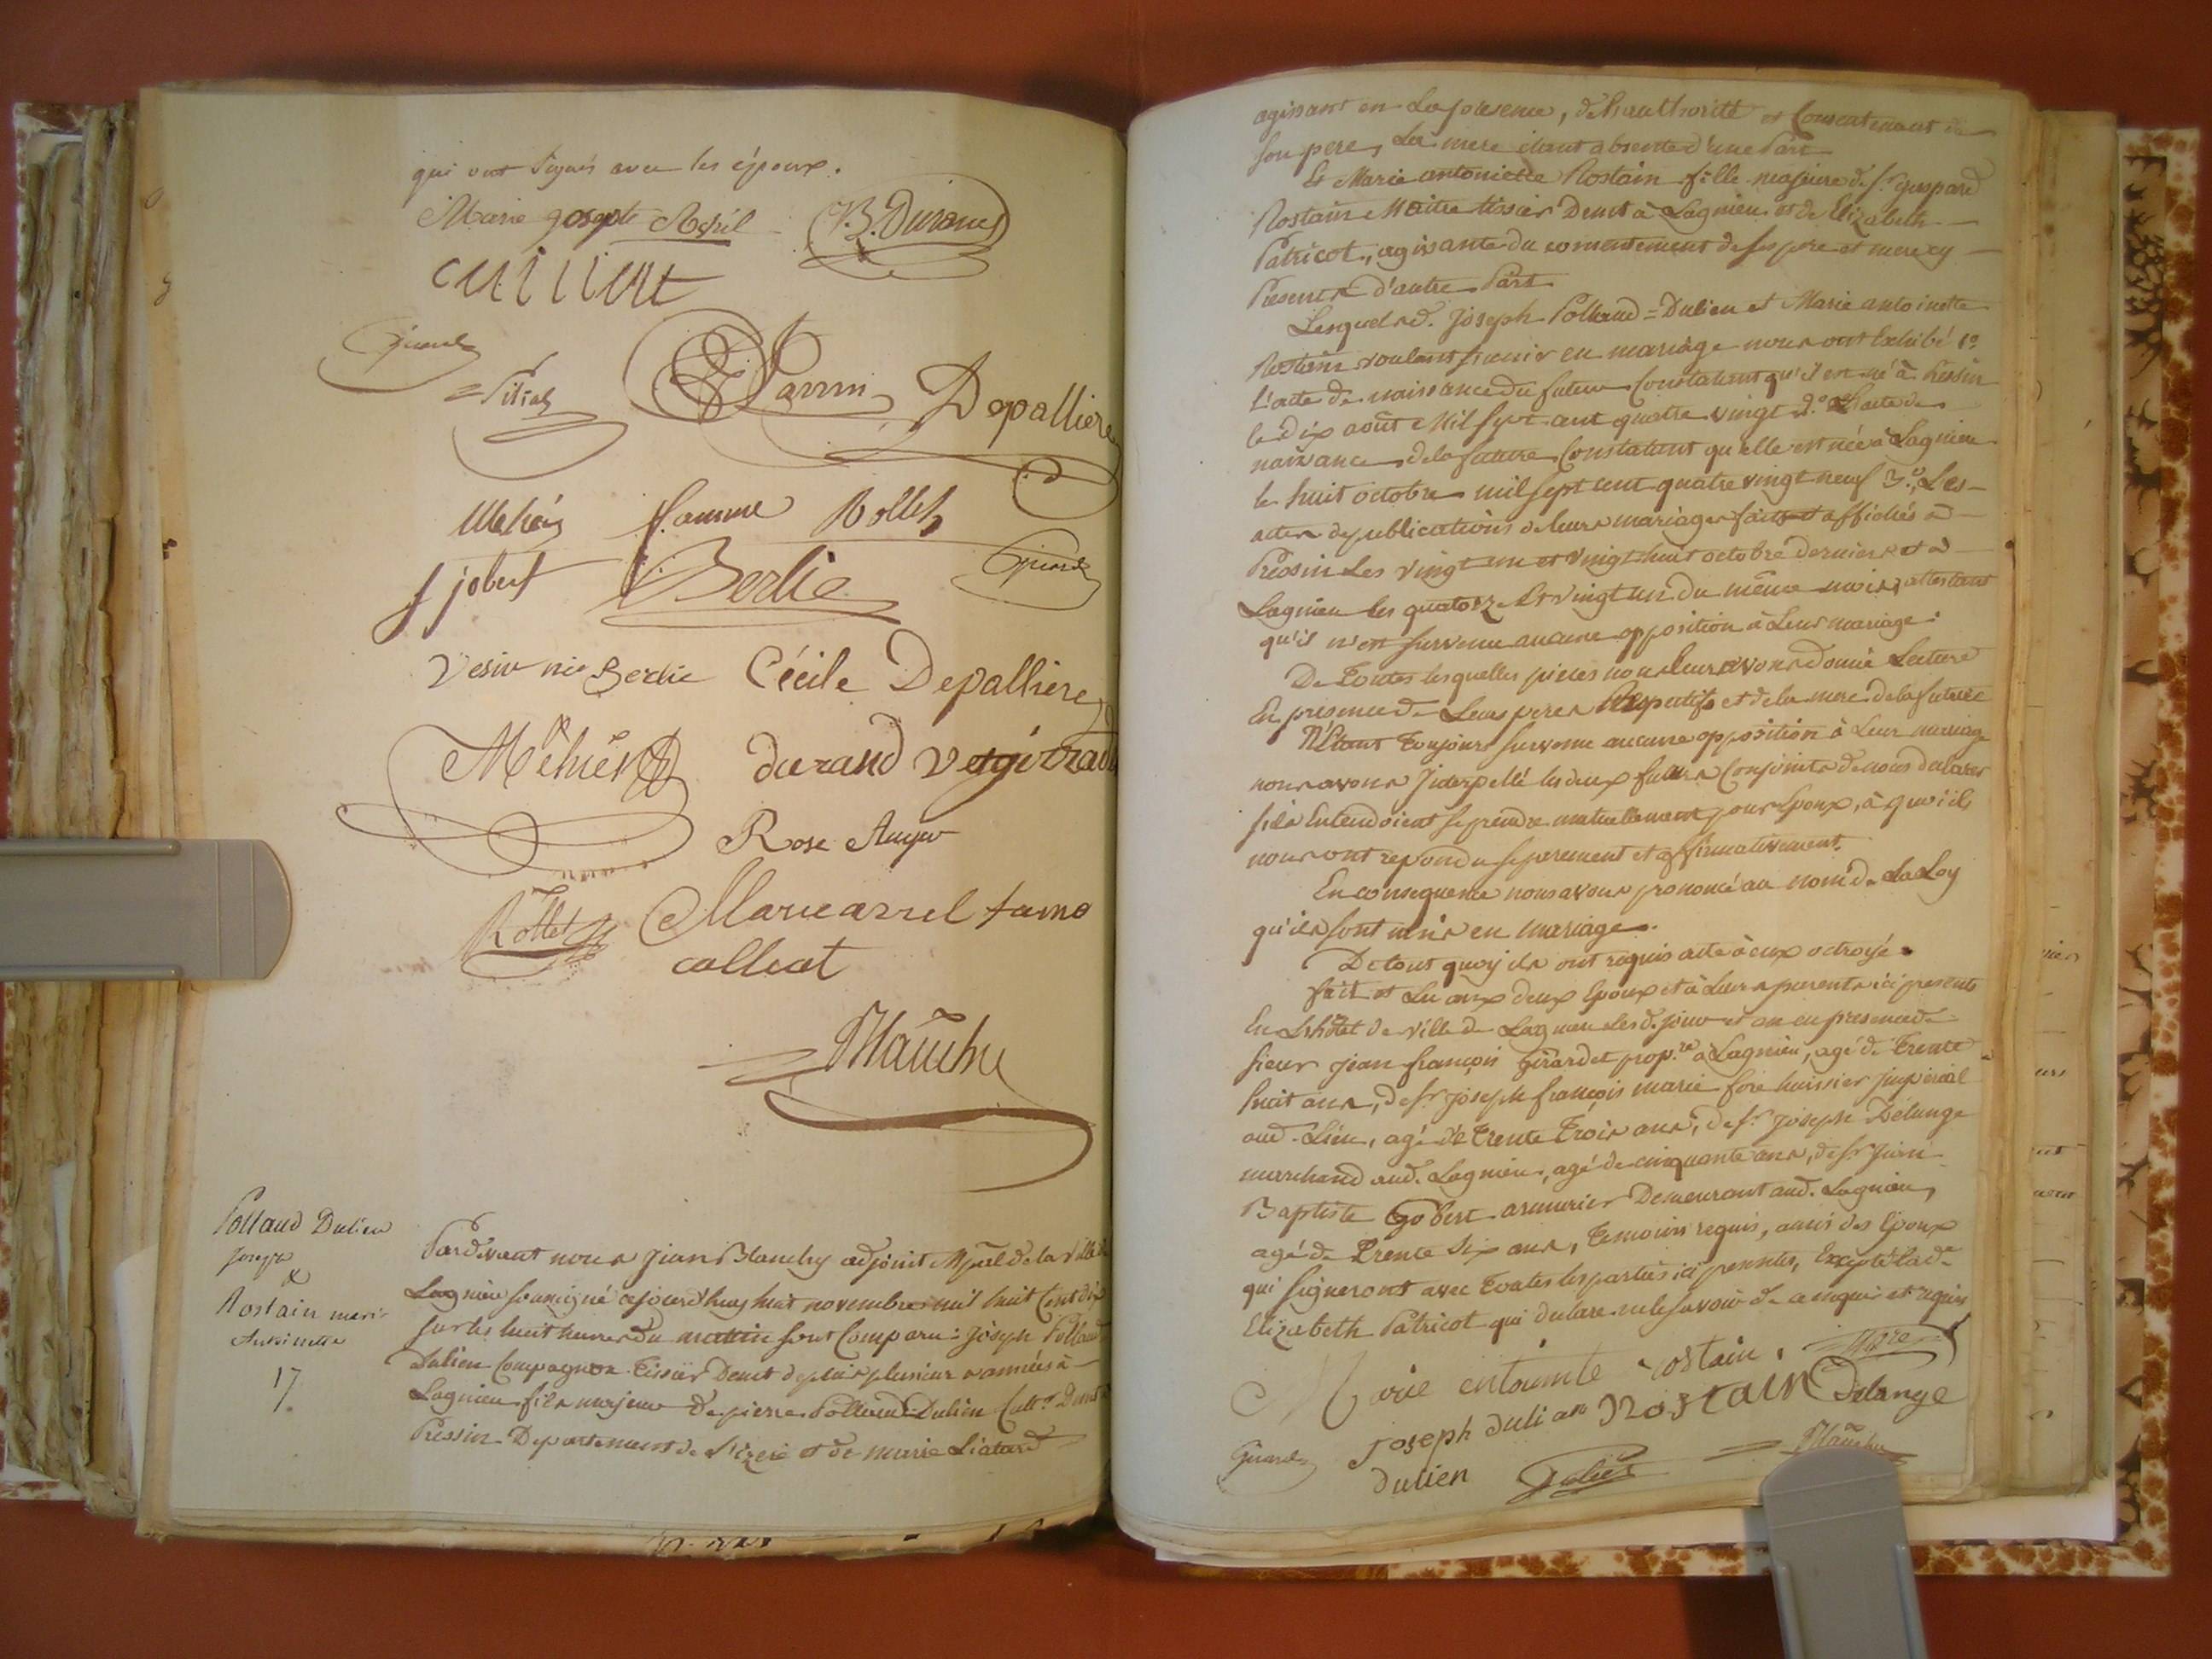 qui ont signés avec les époux.
Marie josepte Asril B. Durand
cuilliut
Girard
Pitiot Parrin Depalliere
Mehier femme Rollet
f jobert Berlie Girard
vesin née Berlie Cécile Depalliere
Mehier durand
Rose Auger
Rollet Marie asrel fame
colleat
Blanchy
Pollaud Dulien
Joseph
&
Rostain marie
Antoinette
17.
Pardevant nous Jean Blanchy adjoint Mpal de la ville de
Lagnieu soussigné cejourd'huy huit novembre mil huit Cent dix
sur les huit heures du matin sont Comparu: Joseph Pollaud
Dulien Compagnon Tissier Demt depuis plusieurs années à
Lagnieu fils majeur de pierre Pollaud Dulien Cultr. Demt
Pressin Departement de L'izere et de marie Liatard
agissant en La presence, de L'authorité et Consentement de
son pere, La mere étant absente d'une Part
Et Marie antoniette Rostain fille majeure d. Sr. gaspard
Rostain Maitre tissier Demt à Lagnieu et de Elizabeth
Patricot, agissante du consentement de ses pere et mere cy
Presents d'autre Part
Lesquels d. Joseph Pollaud=Dulien et Marie antoinette
Rostain voulant s'unir en mariage nous ont Exhibé 1o.
L'acte de naissance du futur Constatant qu'il est né à Pressin
le dix août Mil sept cent quatre vingt 2.o L'acte de
naissance de la future Constatant qu'elle est née à Lagnieu
le huit octobre mil sept cent quatre vingt neuf 3.o Les
actes de publications de leurs mariages faits et affichés à
Pressin Les vingt un et vingt huit octobre derniers et à
Lagnieu les quatorze Et vingt un du même mois, attestant
qu'il n'est survenu aucune opposition à Leur mariage.
De Toutes lesquelles pieces nous leur avons donné Lecture
En presence de Leurs peres Respectifs et de la mere de la future
N'Etant Toujours survenu aucune opposition à Leur mariage
nous avons Interpellé les deux futurs Conjoints de nous declarer
s'ils Entendoient se prendre mutuellement pour Epoux, à quoi ils
nous ont repondu separement et affirmativement.
En consequence nous avons prononcé au nom de La Loy
qu'ils sont unis en mariage.
De tout quoy ils ont requis acte à eux octroyé.
fait et Lu aux deux Epoux et à Leurs parents ici presents
En L'hôtel de ville de Lagnieu Les d. jour et an en presence de
sieur jean françois girardet prop.re à Lagnieu, agé de Trente
huit ans, de Sr. joseph françois marie fore huissier Imperial
aud. Lieu, agé de Trente Trois ans, de Sr. joseph Delange
marchand aud. Lagnieu, agé de cinquante ans, de Sr. Jean
Baptiste Gobert armurier Demeurant aud. Lagnieu,
agé de Trente Six ans, Temoins requis, amis des Epoux
qui signeront avec Toutes les parties ici presentes, Excepté Lade.
Elizabeth Patricot qui declare ne le savoir de ce enquis et requis
Marie entoinite rostain. Fore
joseph dulien rostain Delange
Girard dulien Blanchy